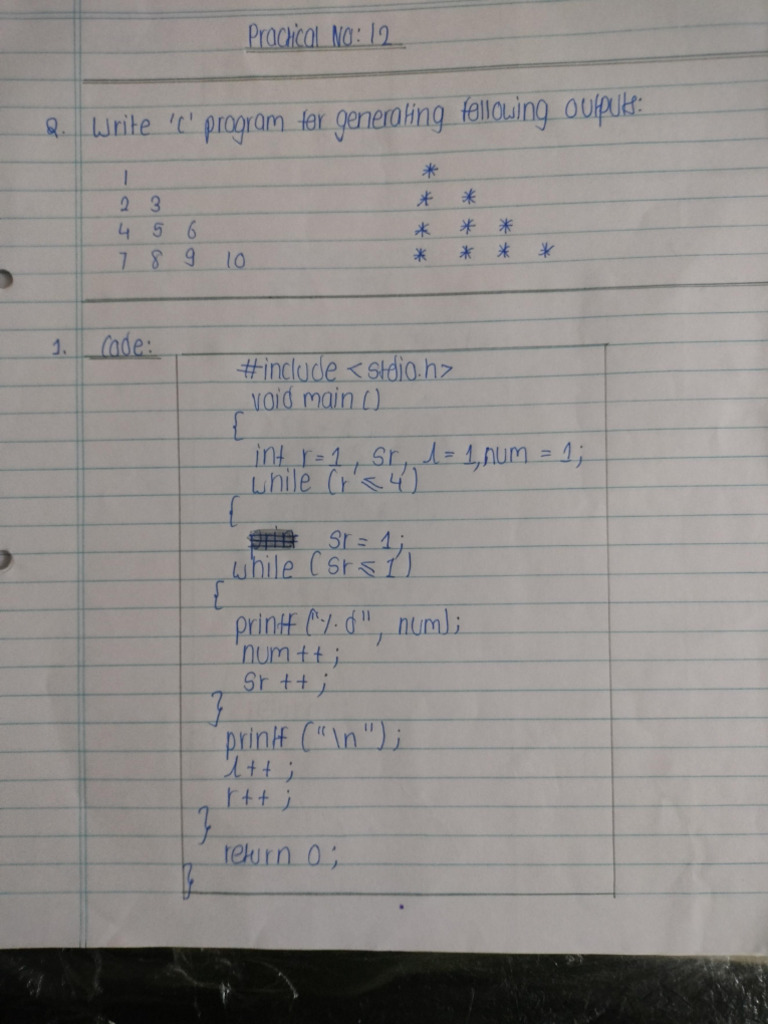 Practical No: 12
Q. Write 'C' program for generating following outputs:
1 *
2 3 * *
4 5 6 * * *
7 8 9 10 * * * *
1. Code:
#include <stdio.h>
void main ()
{
int r=1, sr, l=1, num = 1;
while (r ≤ 4)
{
sr = 1;
while (sr ≤ l)
{
printf ("%d", num);
num ++ ;
sr ++ ;
}
printf ("\n");
l++ ;
r++ ;
}
return 0 ;
}